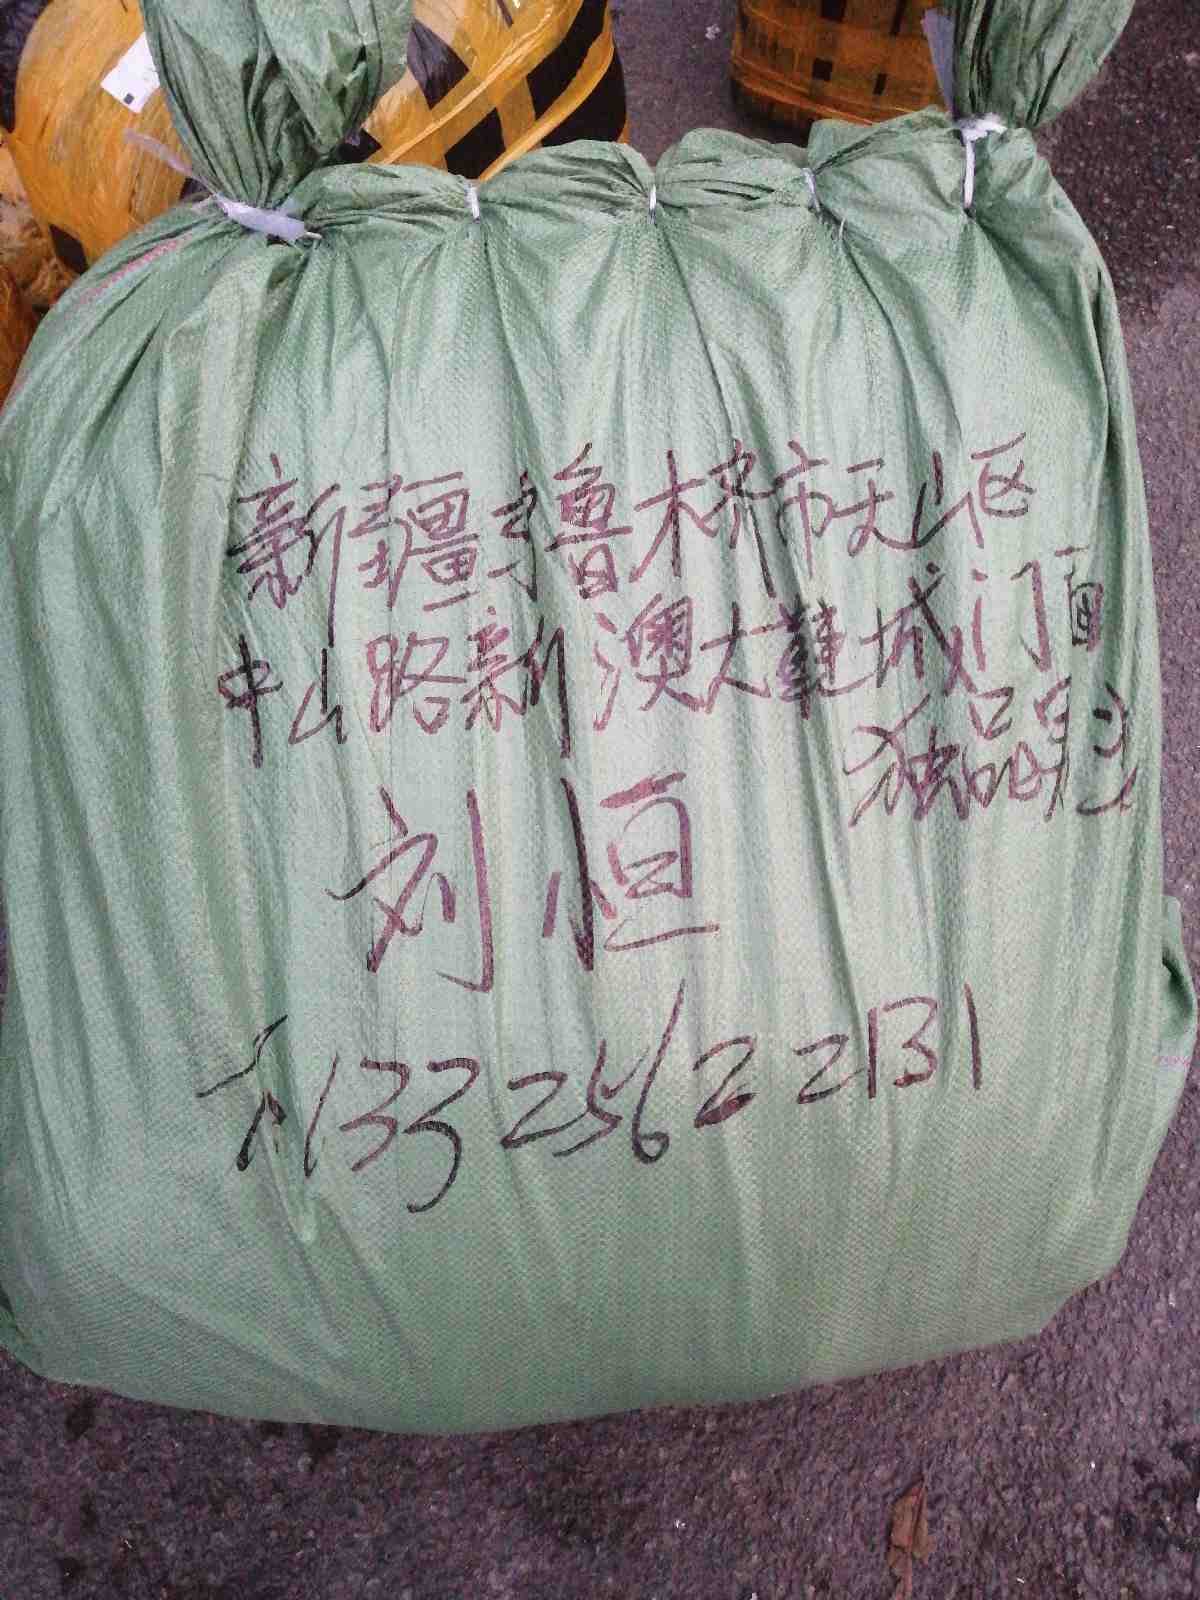 新疆乌鲁木齐市天山区
中山路新澳大鞋城门面
独品男
刘恒
13325622131